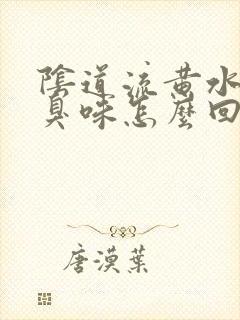 陰道流黄水
臭味怎麼回
唐漠葉